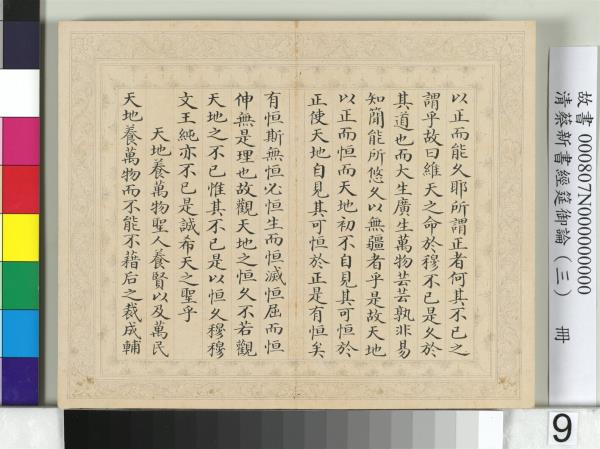 以正而能久耶所謂正者何其不已之
謂乎故曰維天之命於穆不已是久於
其道也而大生廣生萬物芸芸孰非易
知簡能所悠久以無疆者乎是故天地
以正而恒而天地初不自見其可恒於
正使天地自見其可恒於正是有恒矣
有恒斯無恒必恒生而恒滅恒屈而恒
伸無是理也故觀天地之恒久不若觀
天地之不已惟其不已是以恒久穆穆
文王純亦不已是誠希天之聖乎
天地養萬物聖人養賢以及萬民
天地養萬物而不能不藉后之裁成輔
故書 000807N000000000
清蔡新書經筵御論（三） 冊
9